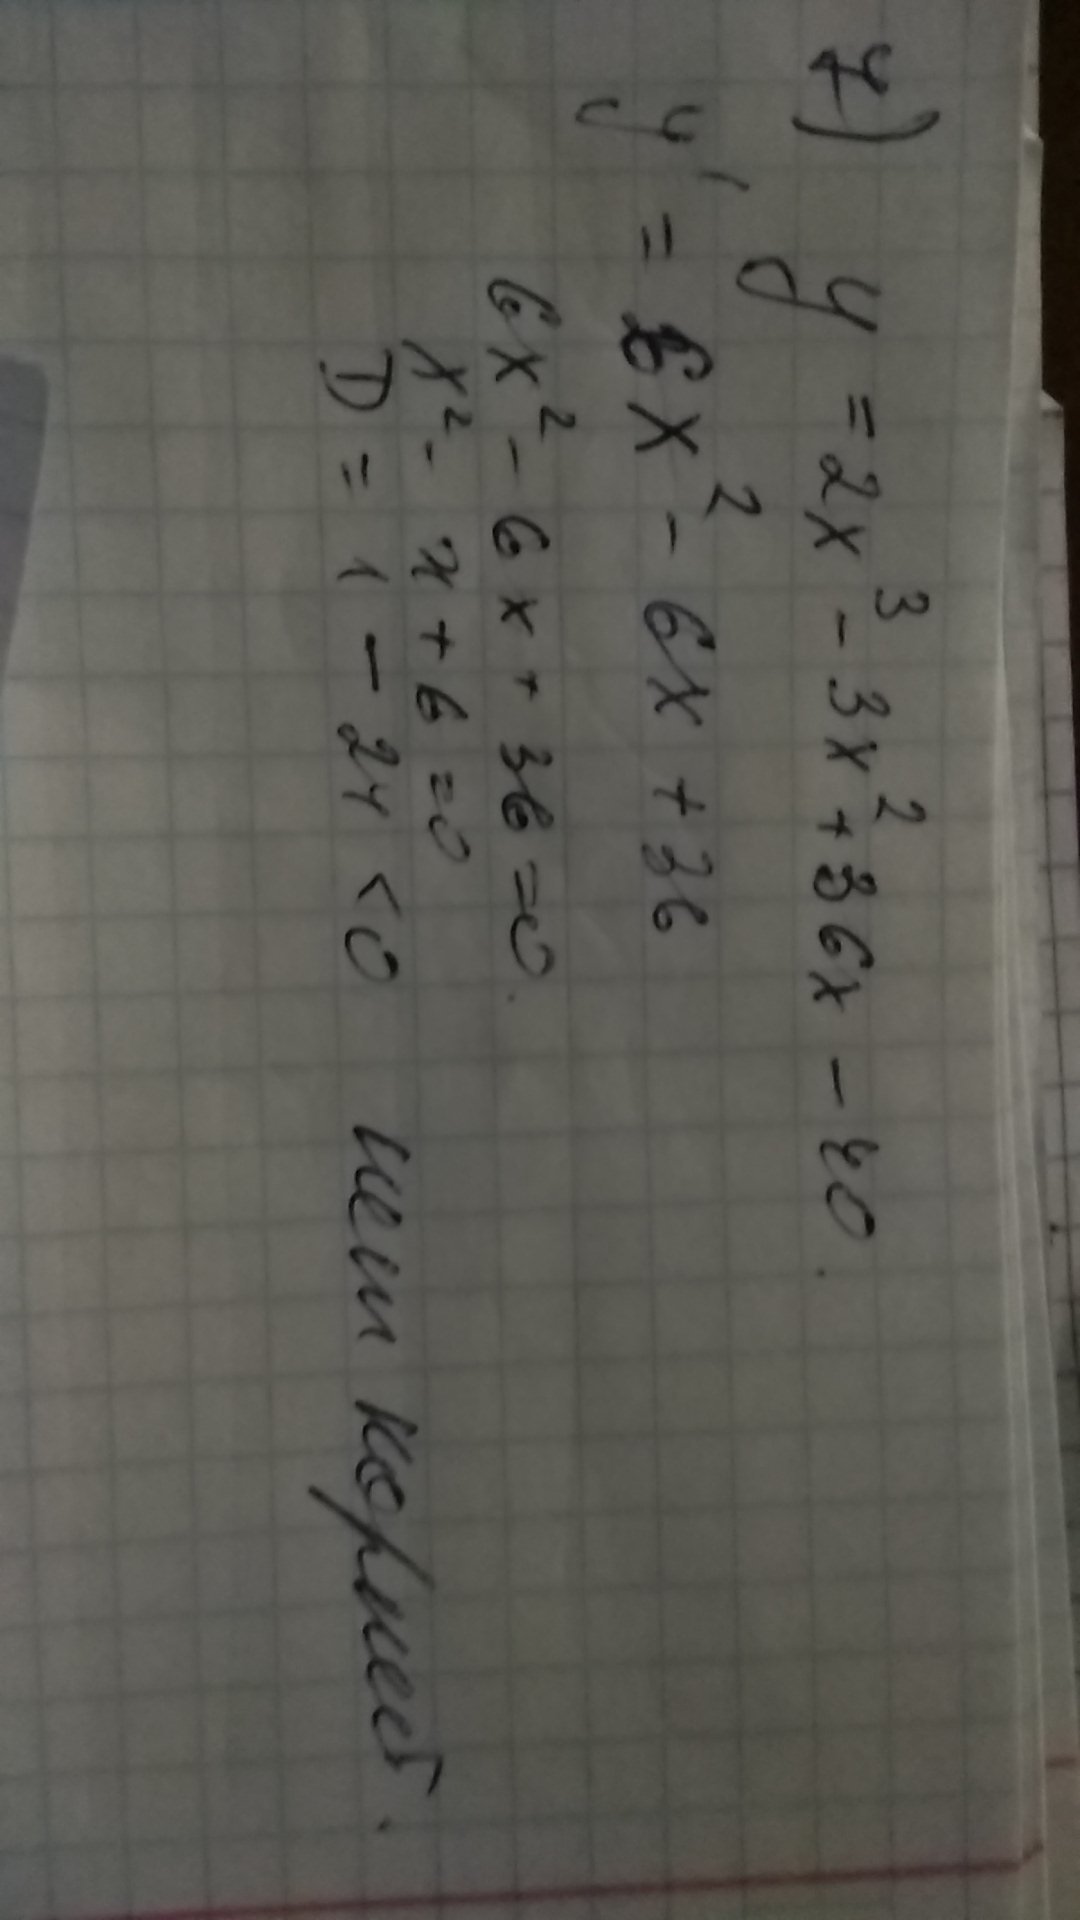 7) y = 2x³ - 3x² + 36x - 40.
y' = 6x² - 6x + 36
6x² - 6x + 36 = 0.
x² - x + 6 = 0
D = 1 - 24 < 0 нет корней.